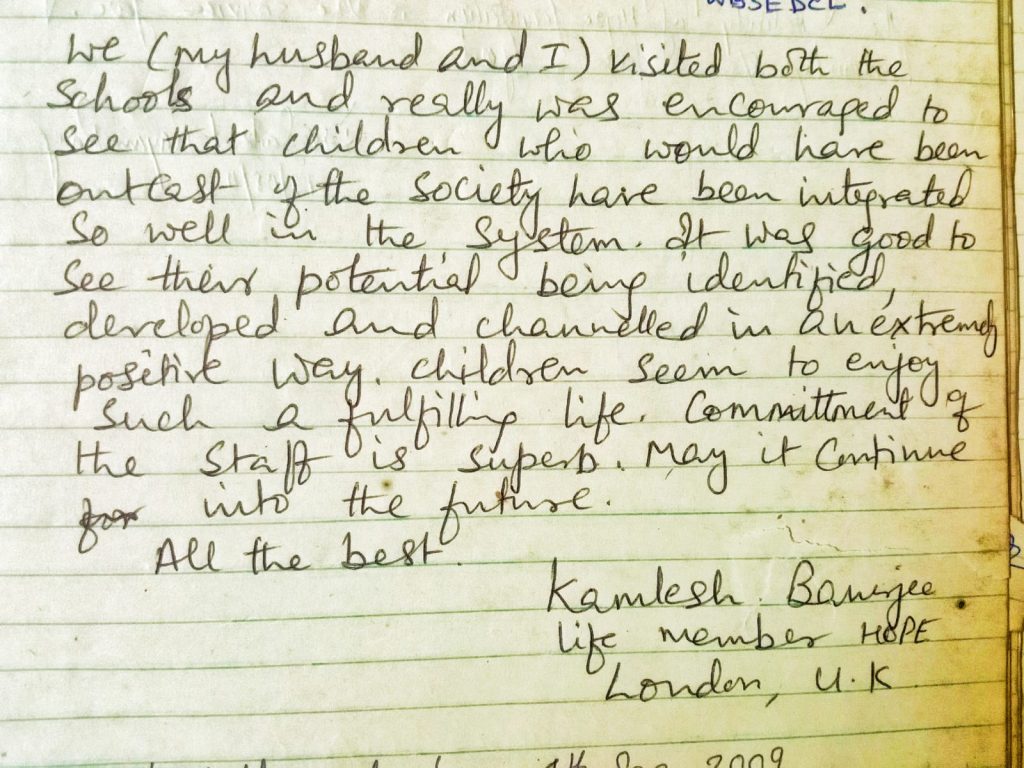 WBSEDCL.
We (my husband and I) visited both the
Schools and really was encouraged to
see that children who would have been
outcast of the society have been integrated
So well in the system. It was good to
see their potential being identified,
developed and channelled in an extremely
positive way. Children seem to enjoy
such a fulfilling life. Committment of
the Staff is superb. May it Continue
for into the future.
All the best.
Kamlesh Banerjee
life member HOPE
London, U.K
2009